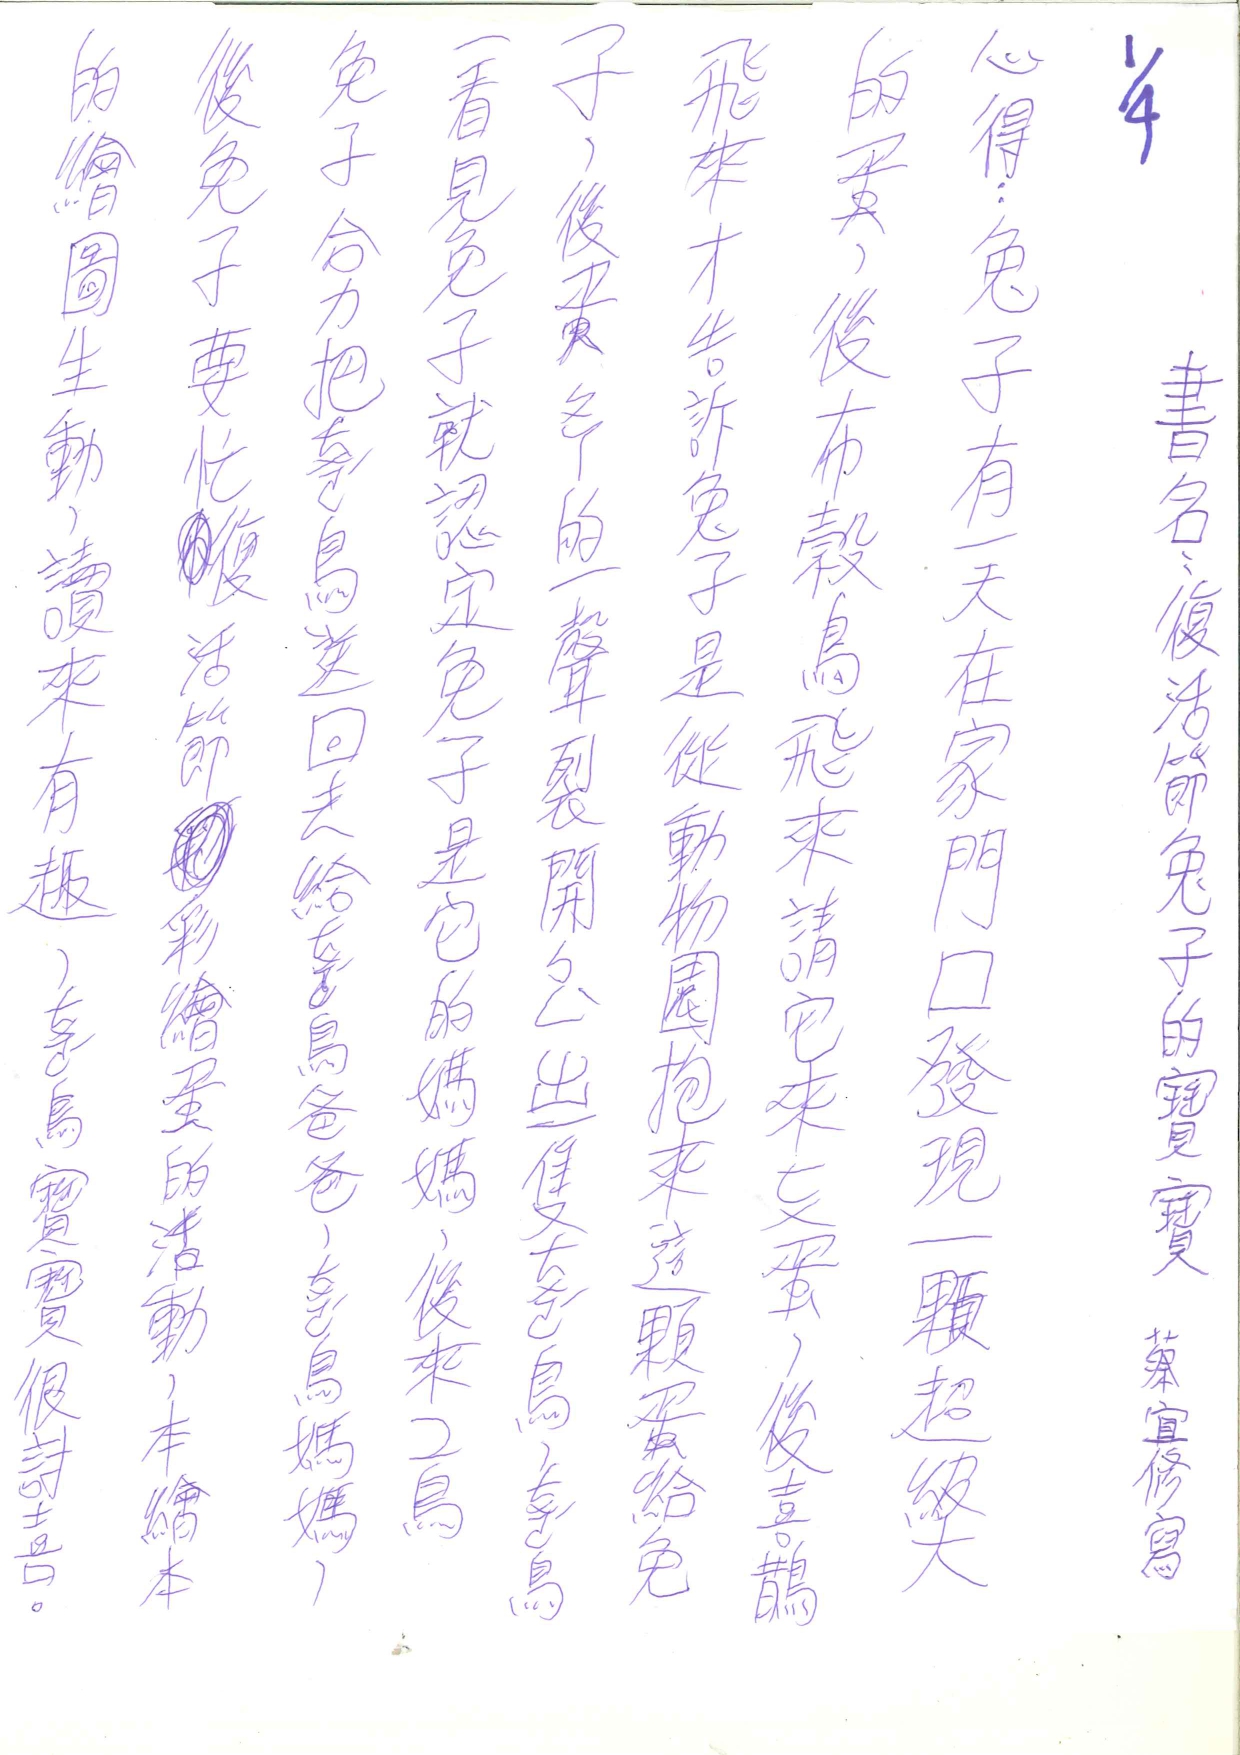 1/4
書名:復活節兔子的寶寶 蔡宜修寫
心得:兔子有一天在家門口發現一顆超級大
的蛋,後布穀鳥飛來請它來交蛋,後喜鵲
飛來才告訴兔子是從動物園抱來這顆蛋給兔
子,後蛋的一聲裂開出隻鳥,鳥
一看見兔子就認定兔子是它的媽媽,後來鳥
兔子合力把鳥送回去給鳥爸爸,鳥媽媽,
後兔子要忙復活節彩繪蛋的活動,本繪本
的繪圖生動,讀來有趣,鳥寶寶很討喜。